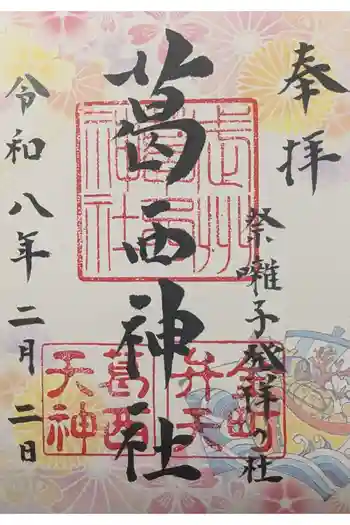 奉拝
祭囃子発祥の社
葛西神社
令和八年二月二日
武州葛西神社
金町弁天
葛西天神